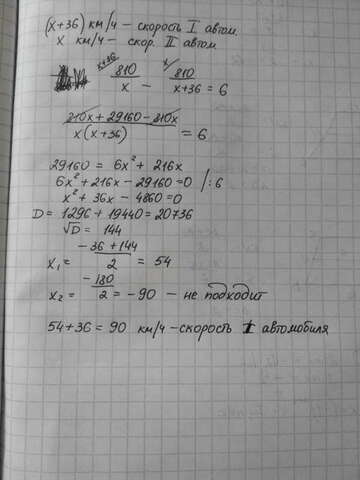 (x+36) км/ч - скорость I автом.
x км/ч - скор. II автом
x+36 810/x - x 810/x+36 = 6
810x + 29160 - 810x / x(x+36) = 6
29160 = 6x² + 216x
6x² + 216x - 29160 = 0 /:6
x² + 36x - 4860 = 0
D = 1296 + 19440 = 20736
√D = 144
x₁ = -36 + 144 / 2 = 54
x₂ = -180 / 2 = -90 - не подходит
54 + 36 = 90 км/ч - скорость I автомобиля